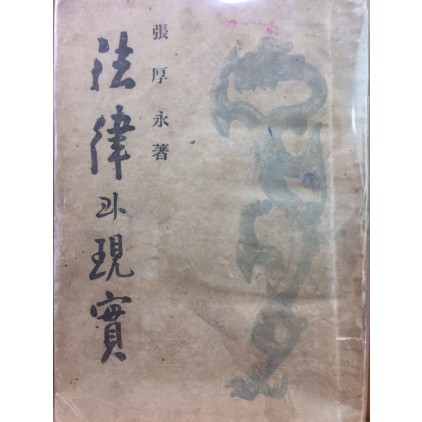 張厚永著
法律과現實